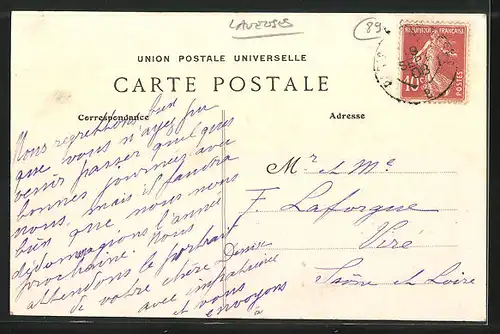 LAVEUSES
89
UNION POSTALE UNIVERSELLE
CARTE POSTALE
Correspondance
Adresse
REPUBLIQUE FRANÇAISE
10c
POSTES
Nous regrettons bien
que vous n'ayez pu
venir passer quelques
bonnes journées avec
nous, mais il faudra
bien que nous nous
dédomagions l'année
prochaine. Nous
attendons le portrait
de votre chère Denise
avec impatience
et vous
envoyons
à
Mr et Me
F. Laforgue
Viré
Saône et Loire